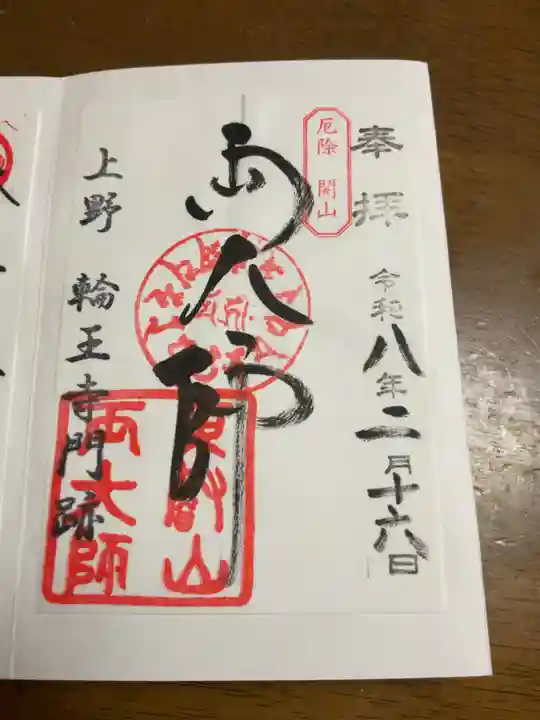 奉拝
令和八年二月十六日
厄除 開山
両大師
東叡山
両大師
上野 輪王寺門跡